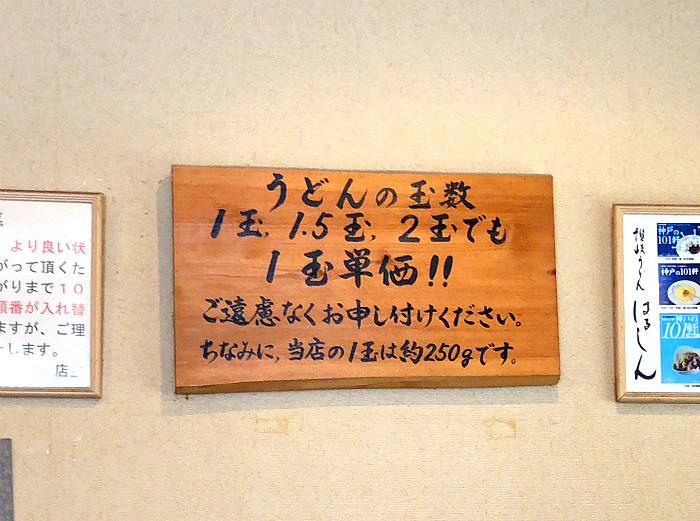 うどんの玉数
1玉, 1.5玉, 2玉でも
1玉単価!!
ご遠慮なくお申し付けください。
ちなみに, 当店の1玉は約250gです。
より良い状
がって頂くた
がりまで10
順番が入れ替
ますが、ご理
します。
店
讃岐うどん はるしん
神戸の
101軒
神戸の101軒
神戸の
101軒